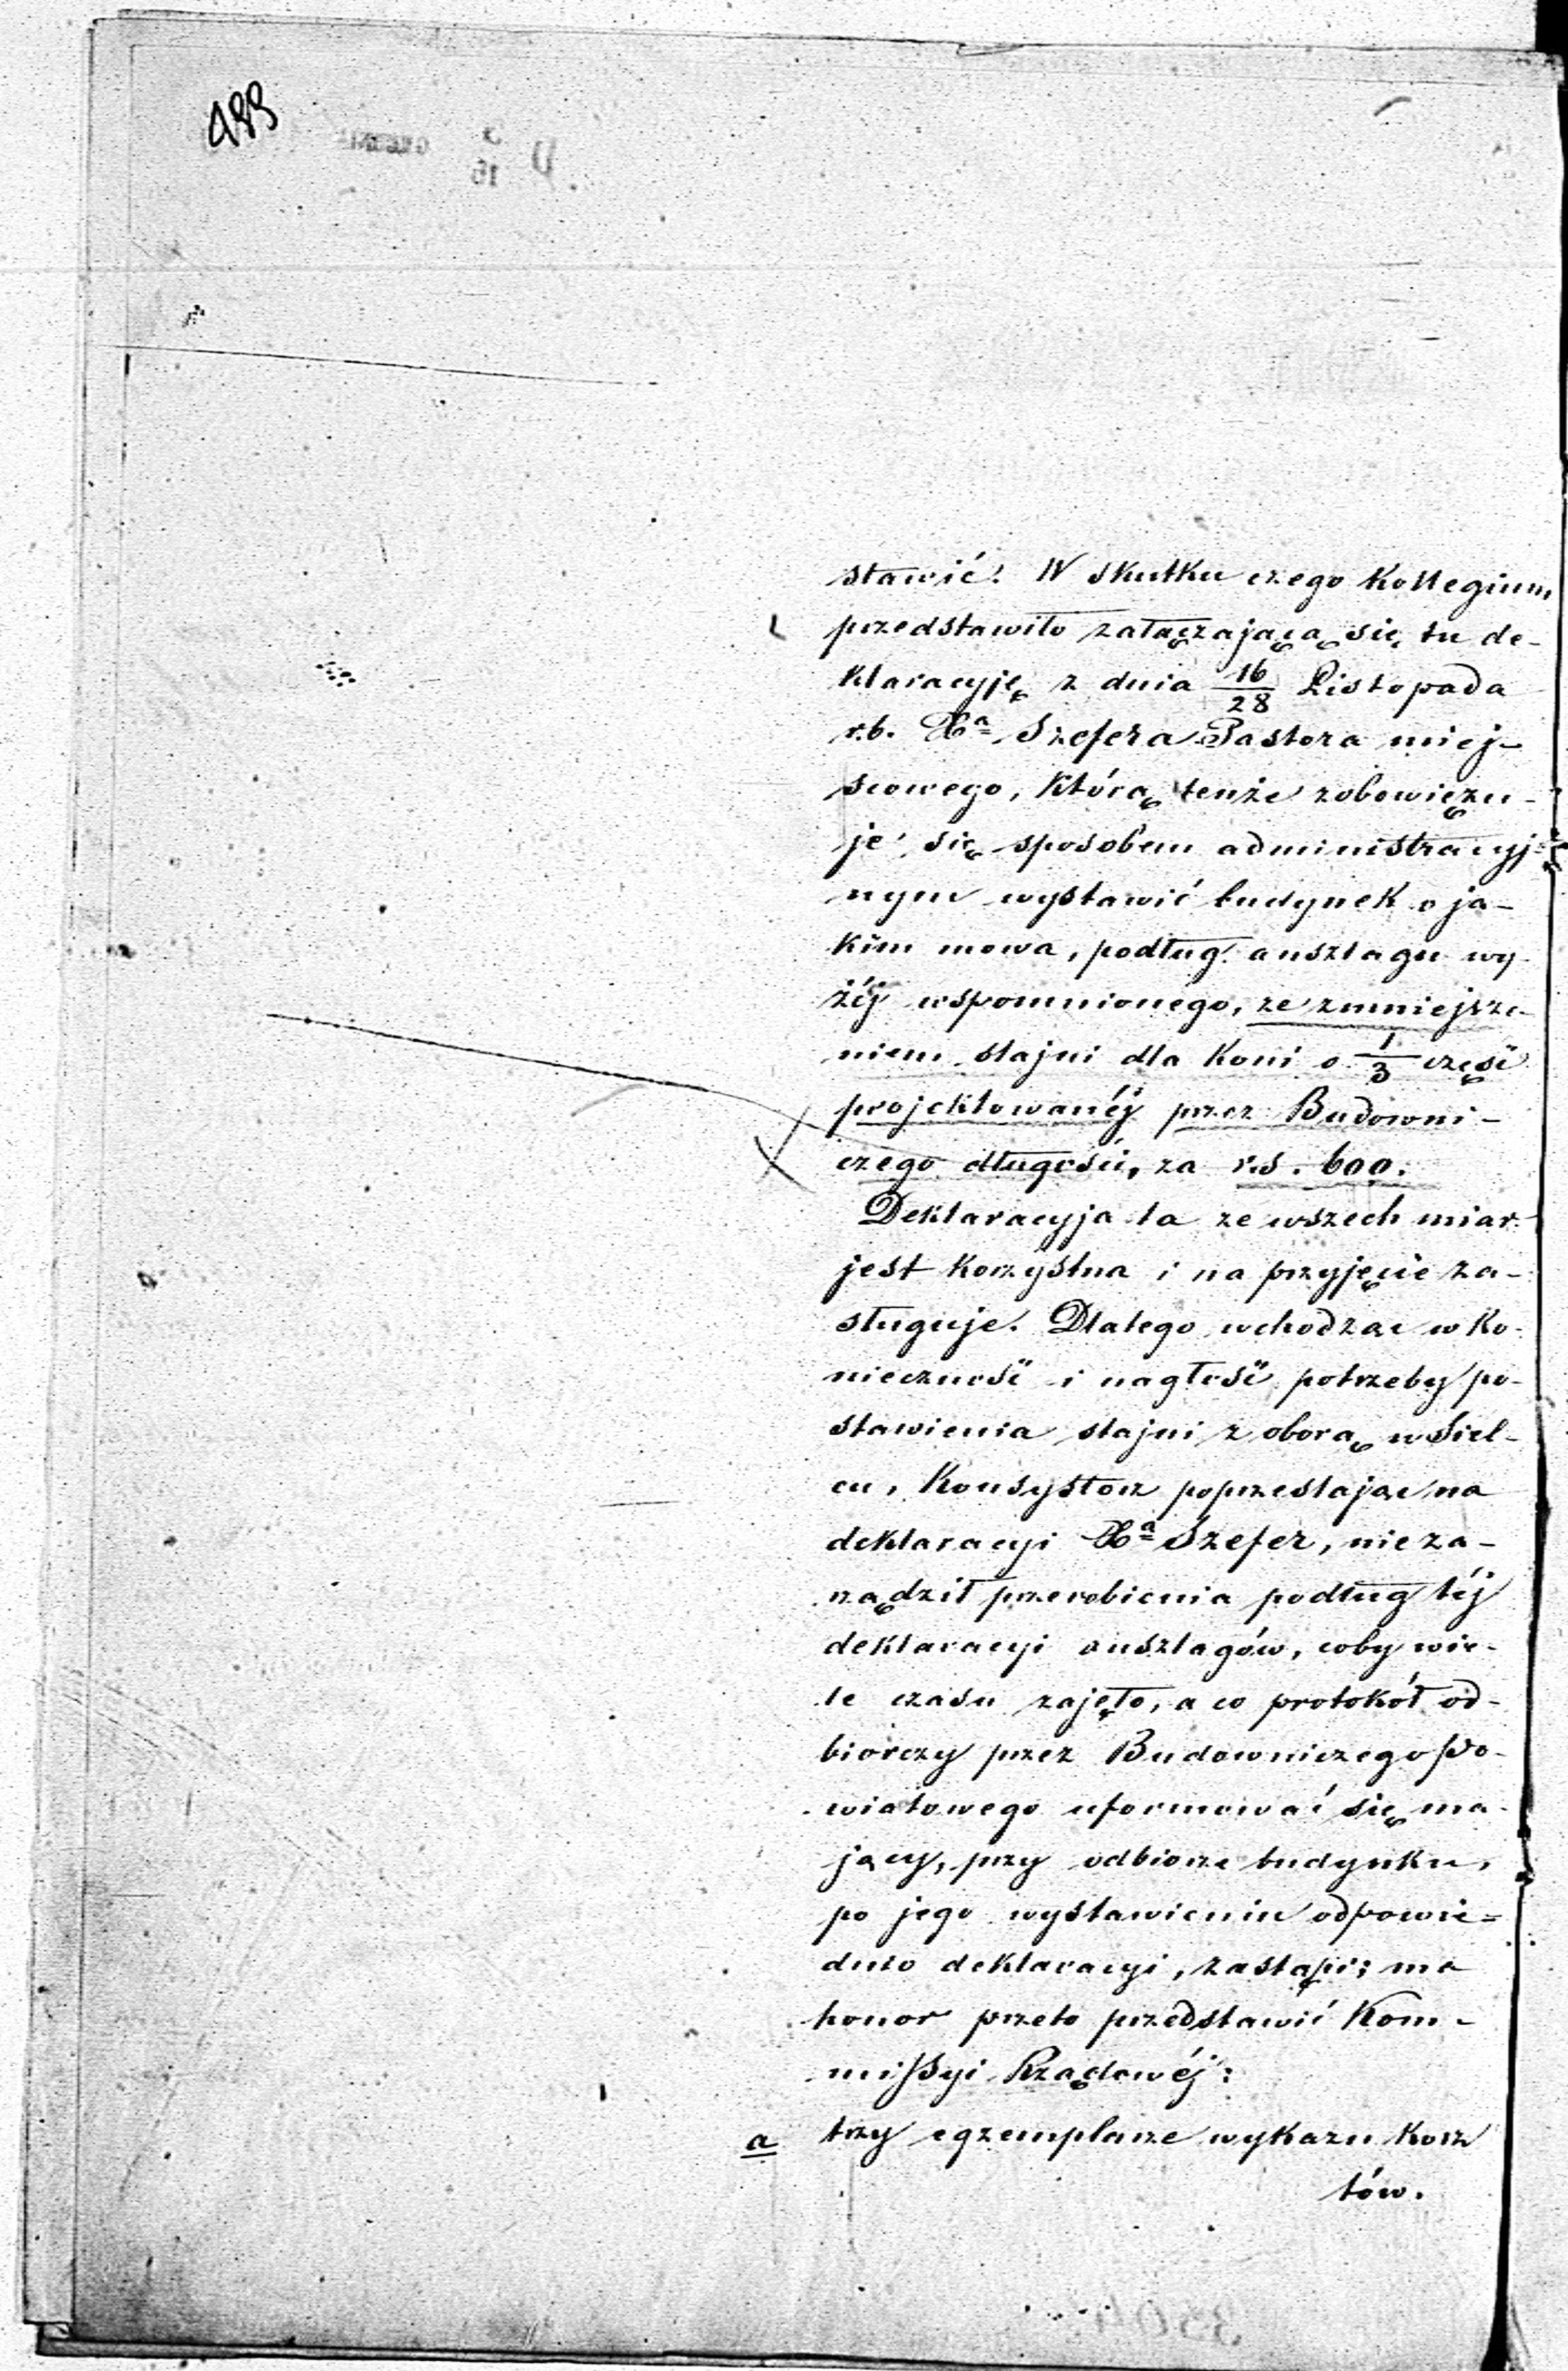 488
stawić. W skutku czego Kollegium
przedstawiło załączającą się tu de-
klaracyję z dnia 16/28 Listopada
r.b. Xa Szefera Pastora miej-
scowego, którą tenże zobowięzu-
je się sposobem administracyj-
nym wystawić budynek o ja-
kim mowa, podług anszlagu wy-
żéj wspomnionego, ze zmniejsze-
niem stajni dla koni o 1/3 część
projektowanéj przez Budowni-
czego długości, za r.s. 600.
Deklaracyja ta ze wszech miar
jest korzystna i na przyjęcie za-
sługuje. Dlatego wchodząc w ko-
nieczność i nagłość potrzeby po-
stawienia stajni z oborą w Siel-
cu, Konsystorz poprzestając na
deklaracyi Xa Szefer, nie za-
rządził przerobienia podług téj
deklaracyi anszlagów, coby wie-
le czasu zajęło, a co protokół od-
biorczy przez Budowniczego Po-
wiatowego uformować się ma-
jący, przy odbiorze budynku,
po jego wystawieniu odpowie-
dnio deklaracyi, zastąpi; ma
honor przeto przedstawić Kom-
missyi Rządowéj:
a trzy egzemplarze wykazu kosz
tów.